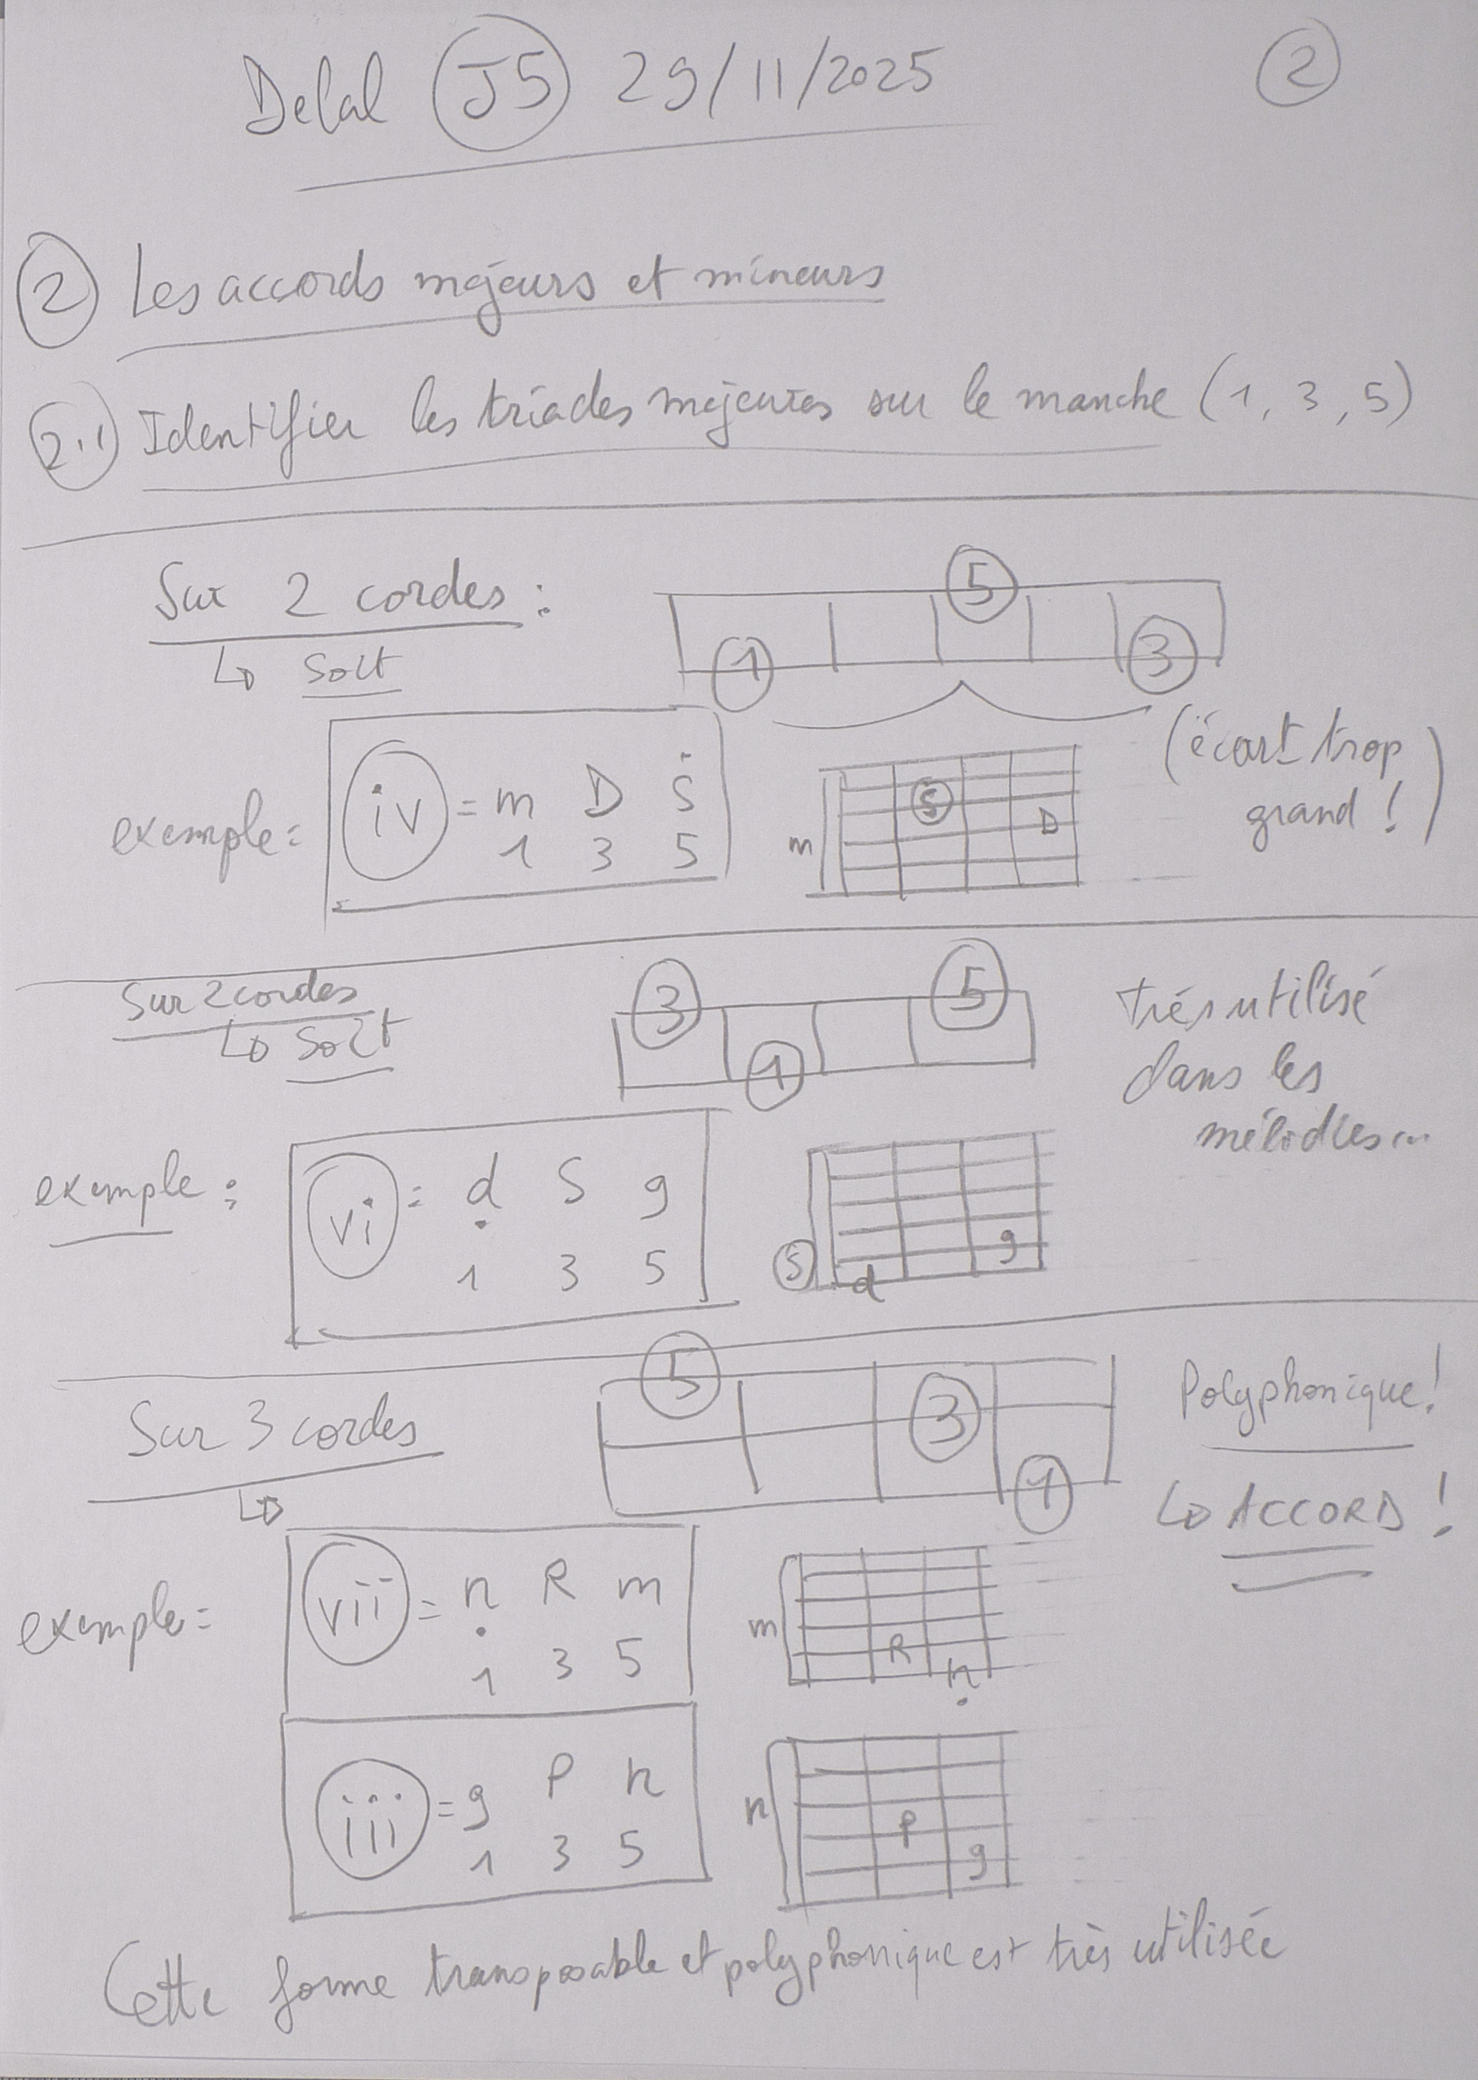 Delal J5 29/11/2025
2
2 Les accords majeurs et mineurs
2.1 Identifier les triades majeures sur le manche (1, 3, 5)
Sur 2 cordes :
↳ soit
5
1 3
exemple = iv = m D Ṡ
1 3 5
S
m D
(écart trop
grand !)
Sur 2 cordes
↳ soit
3 5
1
très utilisé
dans les
mélodies ...
exemple : vi = ḍ S g
1 3 5
g
S d
Sur 3 cordes
↳
5
3
1
Polyphonique !
↳ ACCORD !
exemple = vii = ṇ R m
1 3 5
m
R
ṇ
iii = g P n
1 3 5
n
P
g
Cette forme transposable et polyphonique est très utilisée